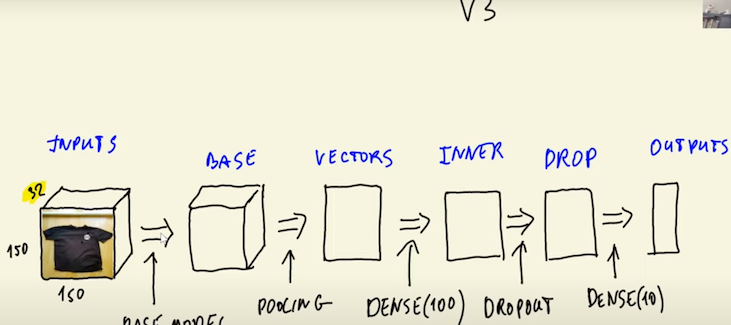 V3
INPUTS
BASE
VECTORS
INNER
DROP
OUTPUTS
32
150
150
BASE MODEL
POOLING
DENSE(100)
DROPOUT
DENSE(10)